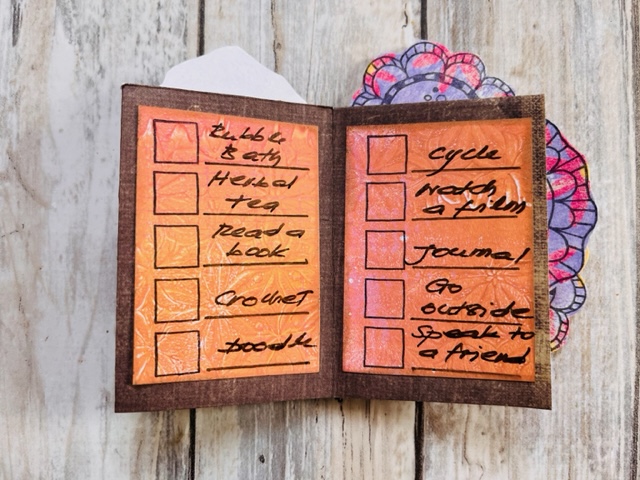 Bubble
Bath
Herbal
tea
Read a
book
Crochet
Doodle
Cycle
Watch
a film
Journal
Go
outside
Speak to
a friend